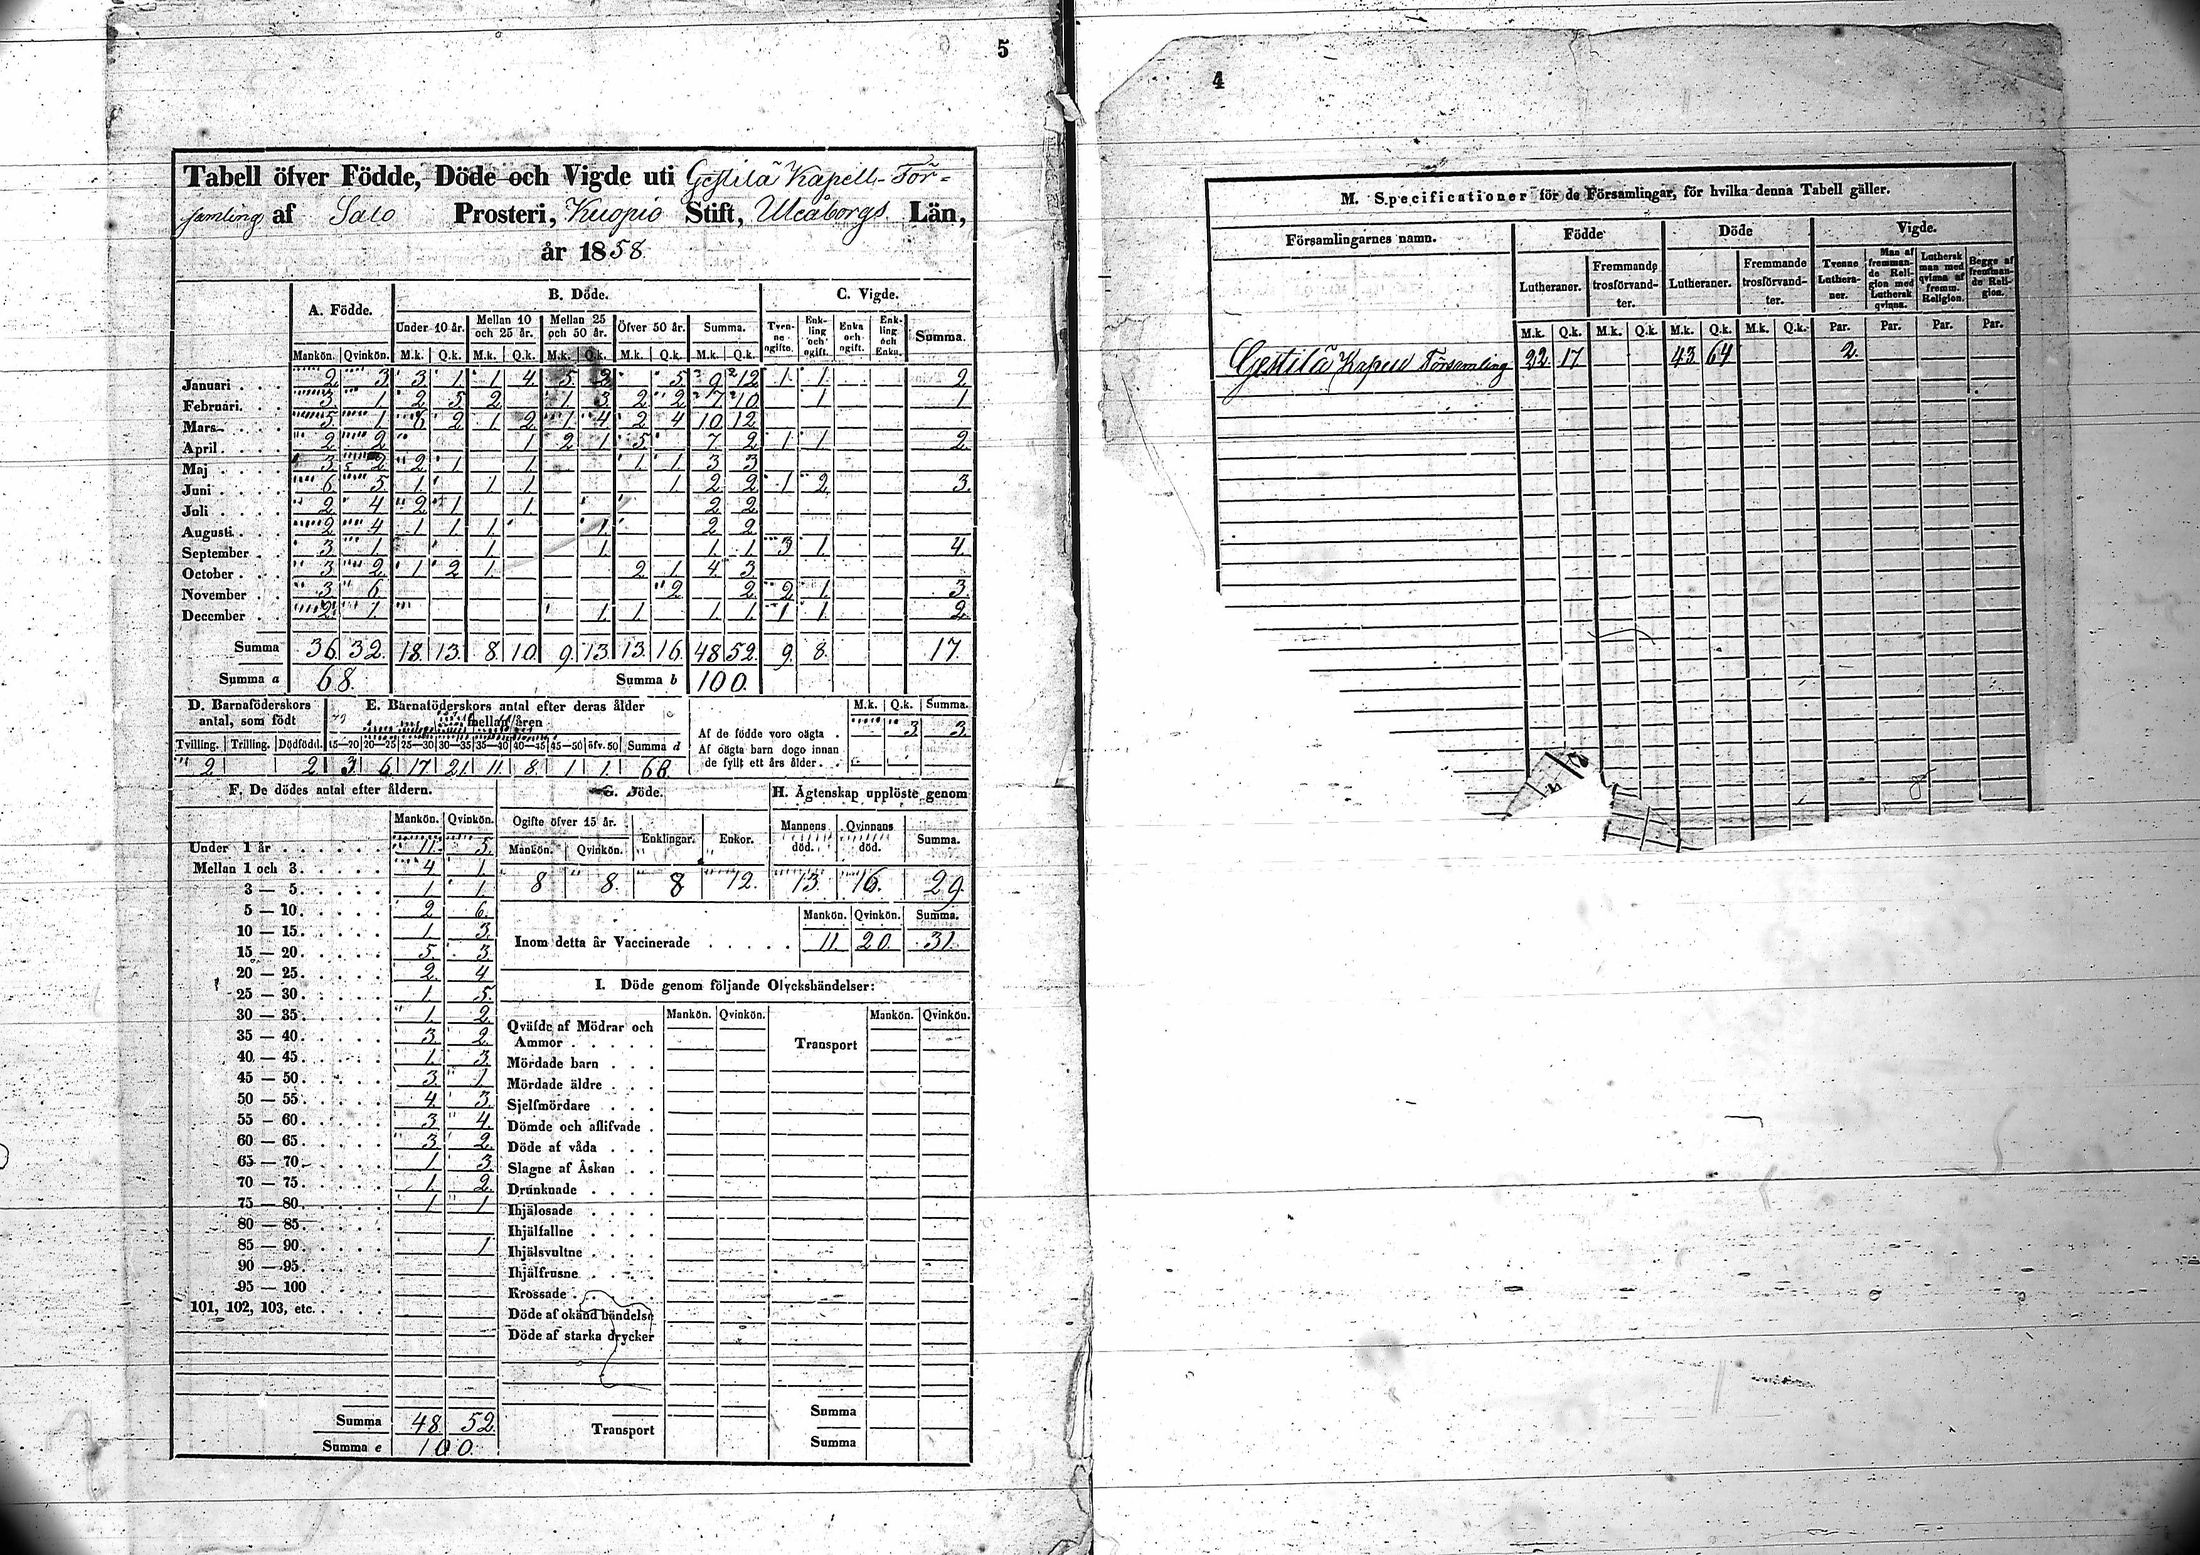 5
Tabell öfver Födde, Döde och Vigde uti Gestilä Kapell-För-
samling af Salo Prosteri, Kuopio Stift, Uleåborgs Län,
år 1858.
A. Födde. B. Döde. C. Vigde.
Under 10 år. Mellan 10 och 25 år. Mellan 25 och 50 år. Öfver 50 år. Summa. Tvenne ogifte. Enkling och ogift. Enka och ogift. Enkling och Enka. Summa.
Mankön. Qvinkön. M.k. Q.k. M.k. Q.k. M.k. Q.k. M.k. Q.k. M.k. Q.k.
Januari 2 3 3 1 1 4 5 2 5 9 12 1 1 2
Februari. 3 1 2 5 2 1 3 2 2 7 10 1 1
Mars 5 1 6 2 1 2 1 4 2 4 10 12
April 2 2 1 2 1 5 7 2 1 1 2
Maj 3 2 2 1 1 1 1 3 3
Juni 6 5 1 1 1 1 2 2 1 2 3
Juli 2 4 2 1 1 2 2
Augusti 2 4 1 1 1 1 2 2
September 3 1 1 1 1 1 3 1 4
October 3 2 1 2 1 2 1 4 3
November 3 6 2 2 2 1 3
December 2 1 1 1 1 1 1 1 2
Summa 36 32 18 13 8 10 9 13 13 16 48 52 9 8 17
Summa a 68. Summa b 100.
D. Barnaföderskors antal, som födt
E. Barnaföderskors antal efter deras ålder mellan åren
M.k. Q.k. Summa.
Af de födde voro oägta . 3 3
Af oägta barn dogo innan
de fyllt ett års ålder. .
Tvilling. Trilling. Dödfödd. 15—20 20—25 25—30 30—35 35—40 40—45 45—50 öfv. 50 Summa d
2 2 3 6 17 21 11 8 1 1 68
F. De dödes antal efter åldern.
Mankön. Qvinkön.
Under 1 år 11 5
Mellan 1 och 3 4 1
3 — 5 1 1
5 — 10 2 6
10 — 15 1 3
15 — 20 5 3
20 — 25 2 4
25 — 30 1 5
30 — 35 1 2
35 — 40 3 2
40 — 45 1 3
45 — 50 3 1
50 — 55 4 3
55 — 60 3 4
60 — 65 3 2
65 — 70 1 3
70 — 75 1 2
75 — 80 1 1
80 — 85
85 — 90 1
90 — 95
95 — 100
101, 102, 103, etc.
Summa 48 52
Summa e 100.
G. Döde.
Ogifte öfver 15 år. Enklingar. Enkor.
Mankön. Qvinkön.
8 8 8 12
H. Ägtenskap upplöste genom
Mannens död. Qvinnans död. Summa.
13 16 29
Mankön. Qvinkön. Summa.
Inom detta år Vaccinerade 11 20 31
I. Döde genom följande Olyckshändelser:
Mankön. Qvinkön. Mankön. Qvinkön.
Qväfde af Mödrar och
Ammor
Transport
Mördade barn
Mördade äldre
Sjelfmördare
Dömde och aflifvade
Döde af våda
Slagne af Åskan
Drunknade
Ihjälosade
Ihjälfallne
Ihjälsvultne
Ihjälfrusne
Krossade
Döde af okänd händelse
Döde af starka drycker
Summa
Transport
Summa
4
M. Specificationer för de Församlingar, för hvilka denna Tabell gäller.
Församlingarnes namn. Födde Döde Vigde.
Lutheraner. Fremmande trosförvandter. Lutheraner. Fremmande trosförvandter. Tvenne Lutheraner. Man af fremmande Religion med Luthersk qvinna. Luthersk man med qvinna af fremm. Religion. Begge af fremmande Religion.
M.k. Q.k. M.k. Q.k. M.k. Q.k. M.k. Q.k. Par. Par. Par. Par.
Gestilä Kapell Församling 22 17 43 64 2